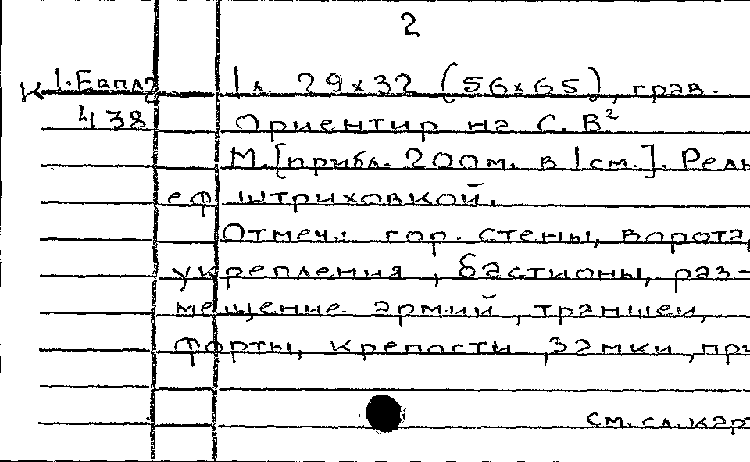 2
К 1-Евпл2 1 л 29x32 (56x65), грав.
438 Ориентир на С.В.²
М.[прибл. 200м. в 1см.]. Рель
еф штриховкой.
Отмеч.: гор. стены, ворота,
укрепления, бастионы, раз-
мещение армий, траншеи,
форты, крепости, замки, при
см. сл. карт